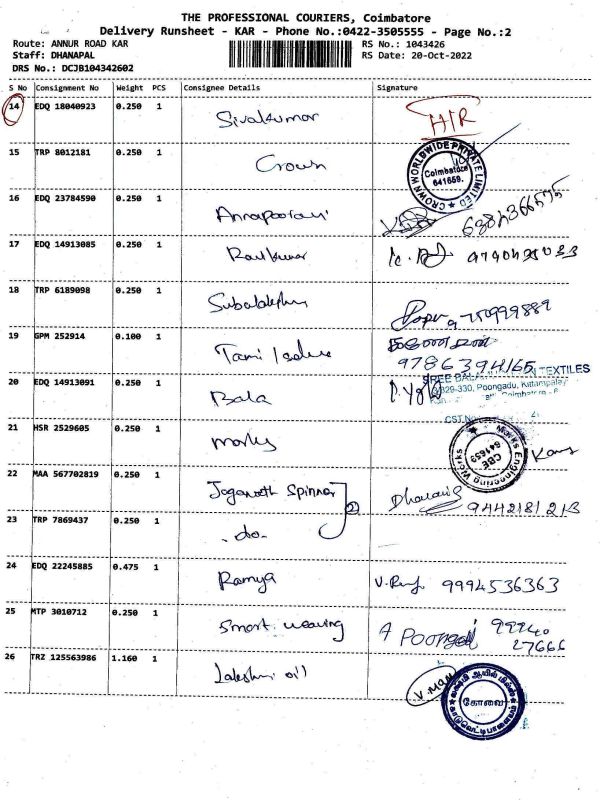 THE PROFESSIONAL COURIERS, Coimbatore
Delivery Runsheet - KAR - Phone No.:0422-3505555 - Page No.:2
Route: ANNUR ROAD KAR RS No.: 1043426
Staff: DHANAPAL RS Date: 20-Oct-2022
DRS No.: DCJB104342602
S No Consignment No Weight PCS Consignee Details Signature
14 EDQ 18040923 0.250 1 Sivakumar HR
15 TRP 8012181 0.250 1 Crown CROWN WORLDWIDE PRIVATE LIMITED Coimbatore 641659.
16 EDQ 23784590 0.250 1 Annapoorani
17 EDQ 14913085 0.250 1 Ravikumar
18 TRP 6189098 0.250 1
19 GPM 252914 0.100 1
9786394165
20 EDQ 14913091 0.250 1 Bala TEXTILES
329-330, Poongadu, Kittampalay
CST No
21 HSR 2529605 0.250 1 Marks Marks Engineering Works CBE 641659
22 MAA 567702819 0.250 1 Jaganath Spinner 2 9442181213
23 TRP 7869437 0.250 1 - do -
24 EDQ 22245885 0.475 1 Ramya 9994536363
25 MTP 3010712 0.250 1 Smart weaving A 99940
27666
26 TRZ 125563986 1.160 1 Lakshmi oil V.Mani கோவை